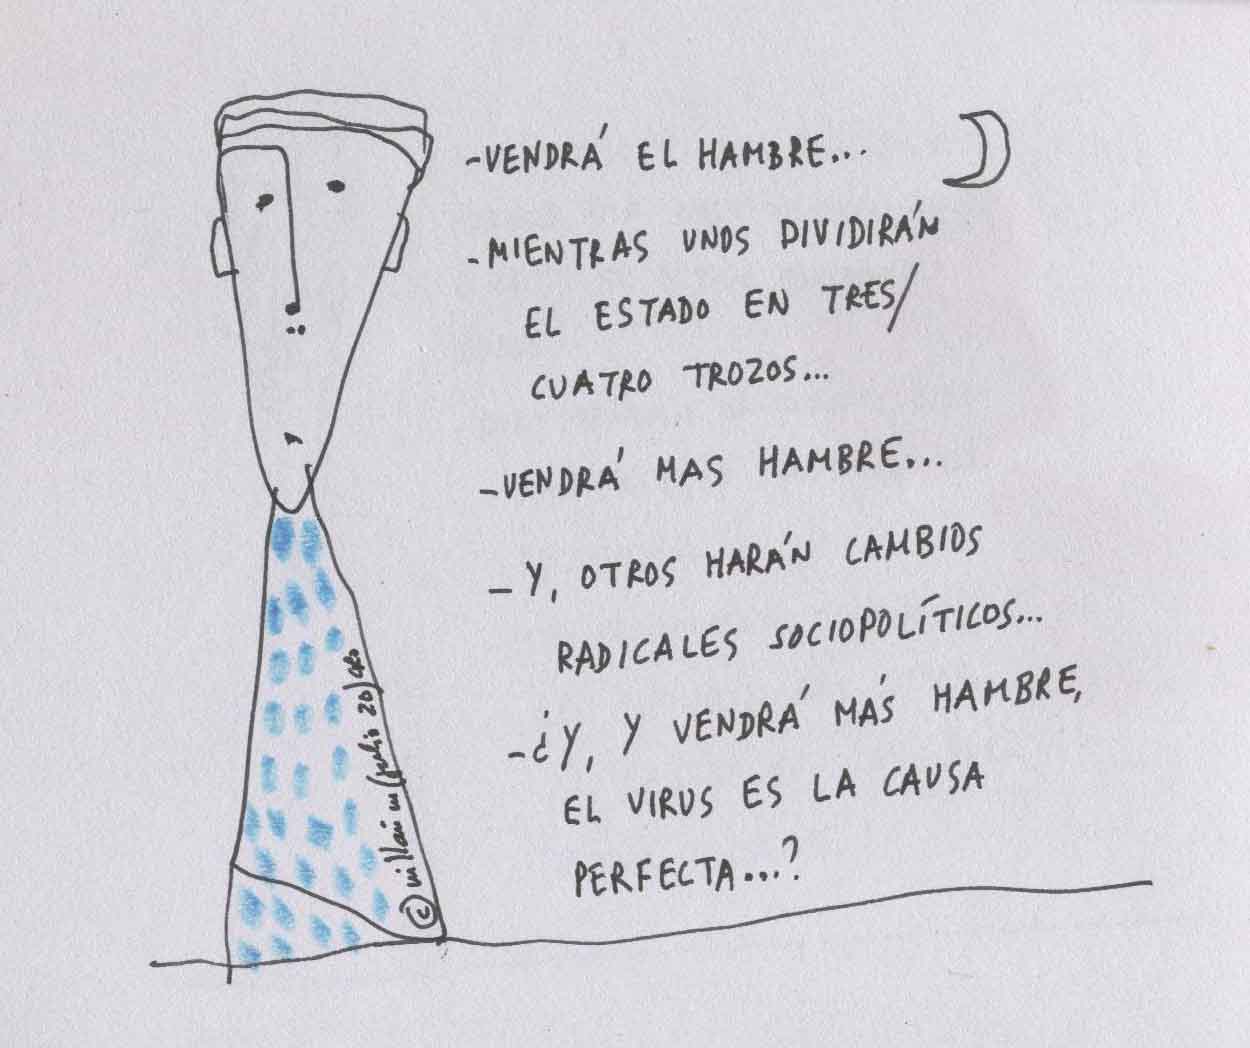 -VENDRÁ EL HAMBRE...
-MIENTRAS UNOS DIVIDIRÁN
EL ESTADO EN TRES/
CUATRO TROZOS...
-VENDRÁ MAS HAMBRE...
-Y, OTROS HARÁN CAMBIOS
RADICALES SOCIOPOLÍTICOS...
-¿Y, Y VENDRÁ MÁS HAMBRE,
EL VIRUS ES LA CAUSA
PERFECTA...?
© millan m (julio 20)